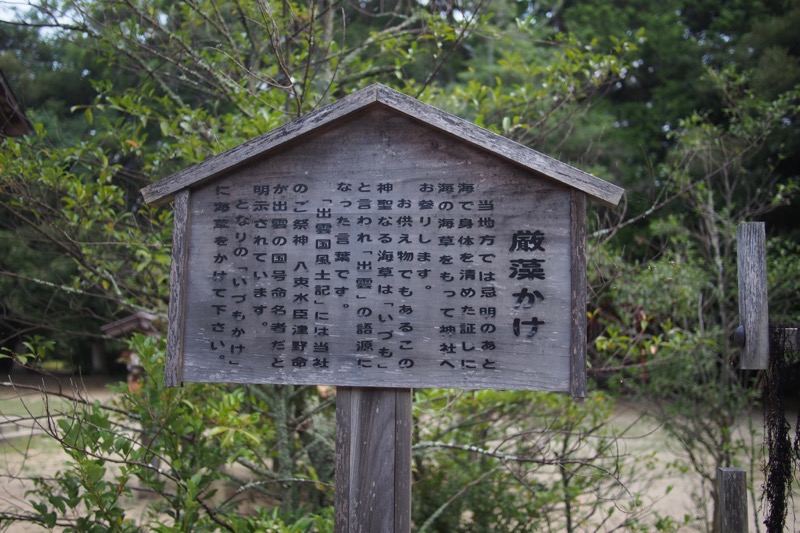 厳藻かけ
当地方では忌明のあと
海で身体を清めた証しに
海の海草をもって神社へ
お参りします。
お供え物でもあるこの
神聖なる海草は「いづも」
と言われ「出雲」の語源に
なった言葉です。
「出雲国風土記」には当社
のご祭神 八束水臣津野命
が出雲の国号命名者だと
明示されています。
となりの「いづもかけ」
に海藻をかけて下さい。